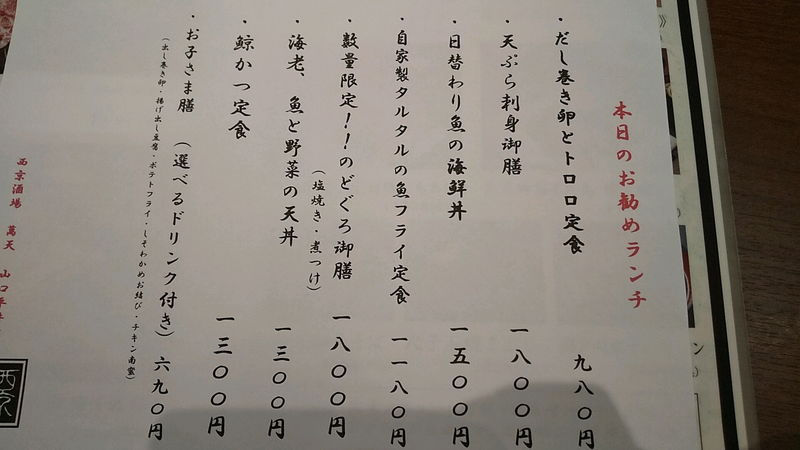 本日のお勧めランチ
・だし巻き卵とトロロ定食 九八〇円
・天ぷら刺身御膳 一八〇〇円
・日替わり魚の海鮮丼 一五〇〇円
・自家製タルタルの魚フライ定食 一一八〇円
・数量限定！！のどぐろ御膳 一八〇〇円
（塩焼き・煮つけ）
・海老、魚と野菜の天丼 一三〇〇円
・鯨かつ定食 一三〇〇円
・お子さま膳 （選べるドリンク付き） 六九〇円
（出し巻き卵・揚げ出し豆腐・ポテトフライ・しそわかめお結び・チキン南蛮）
西京酒場 萬天 山口
西京